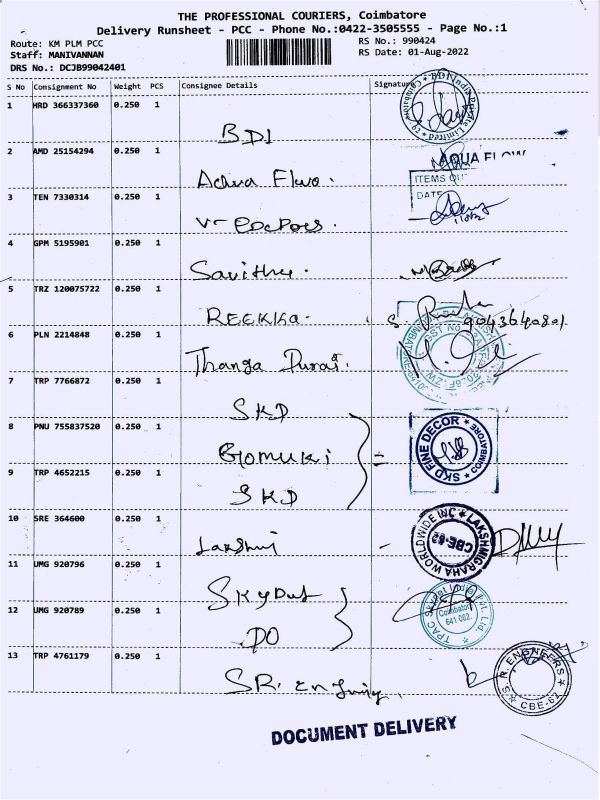 THE PROFESSIONAL COURIERS, Coimbatore
Delivery Runsheet - PCC - Phone No.:0422-3505555 - Page No.:1
Route: KM PLM PCC
Staff: MANIVANNAN
DRS No.: DCJB99042401
RS No.: 990424
RS Date: 01-Aug-2022
S No Consignment No Weight PCS Consignee Details Signature
1 HRD 366337360 0.250 1
BDI
2 AMD 25154294 0.250 1
AQUA FLOW
ITEMS
DATE
3 TEN 7330314 0.250 1
4 GPM 5195901 0.250 1
5 TRZ 120075722 0.250 1
REEKHA.
9043640801
6 PLN 2214848 0.250 1
GST No
Thanga Durai.
7 TRP 7766872 0.250 1
SKD
8 PNU 755837520 0.250 1
Gomuki
SKD FINE DECOR ★ COIMBATORE ★
9 TRP 4652215 0.250 1
SKD
10 SRE 364600 0.250 1
LAKSHMIGRAHA WORLDWIDE INC ★
CBE-62
Lakshmi
11 UMG 920796 0.250 1
12 UMG 920789 0.250 1
Coimbatore
641 062.
DO
13 TRP 4761179 0.250 1
S.R. ENGINEERS
★ CBE-62 ★
DOCUMENT DELIVERY